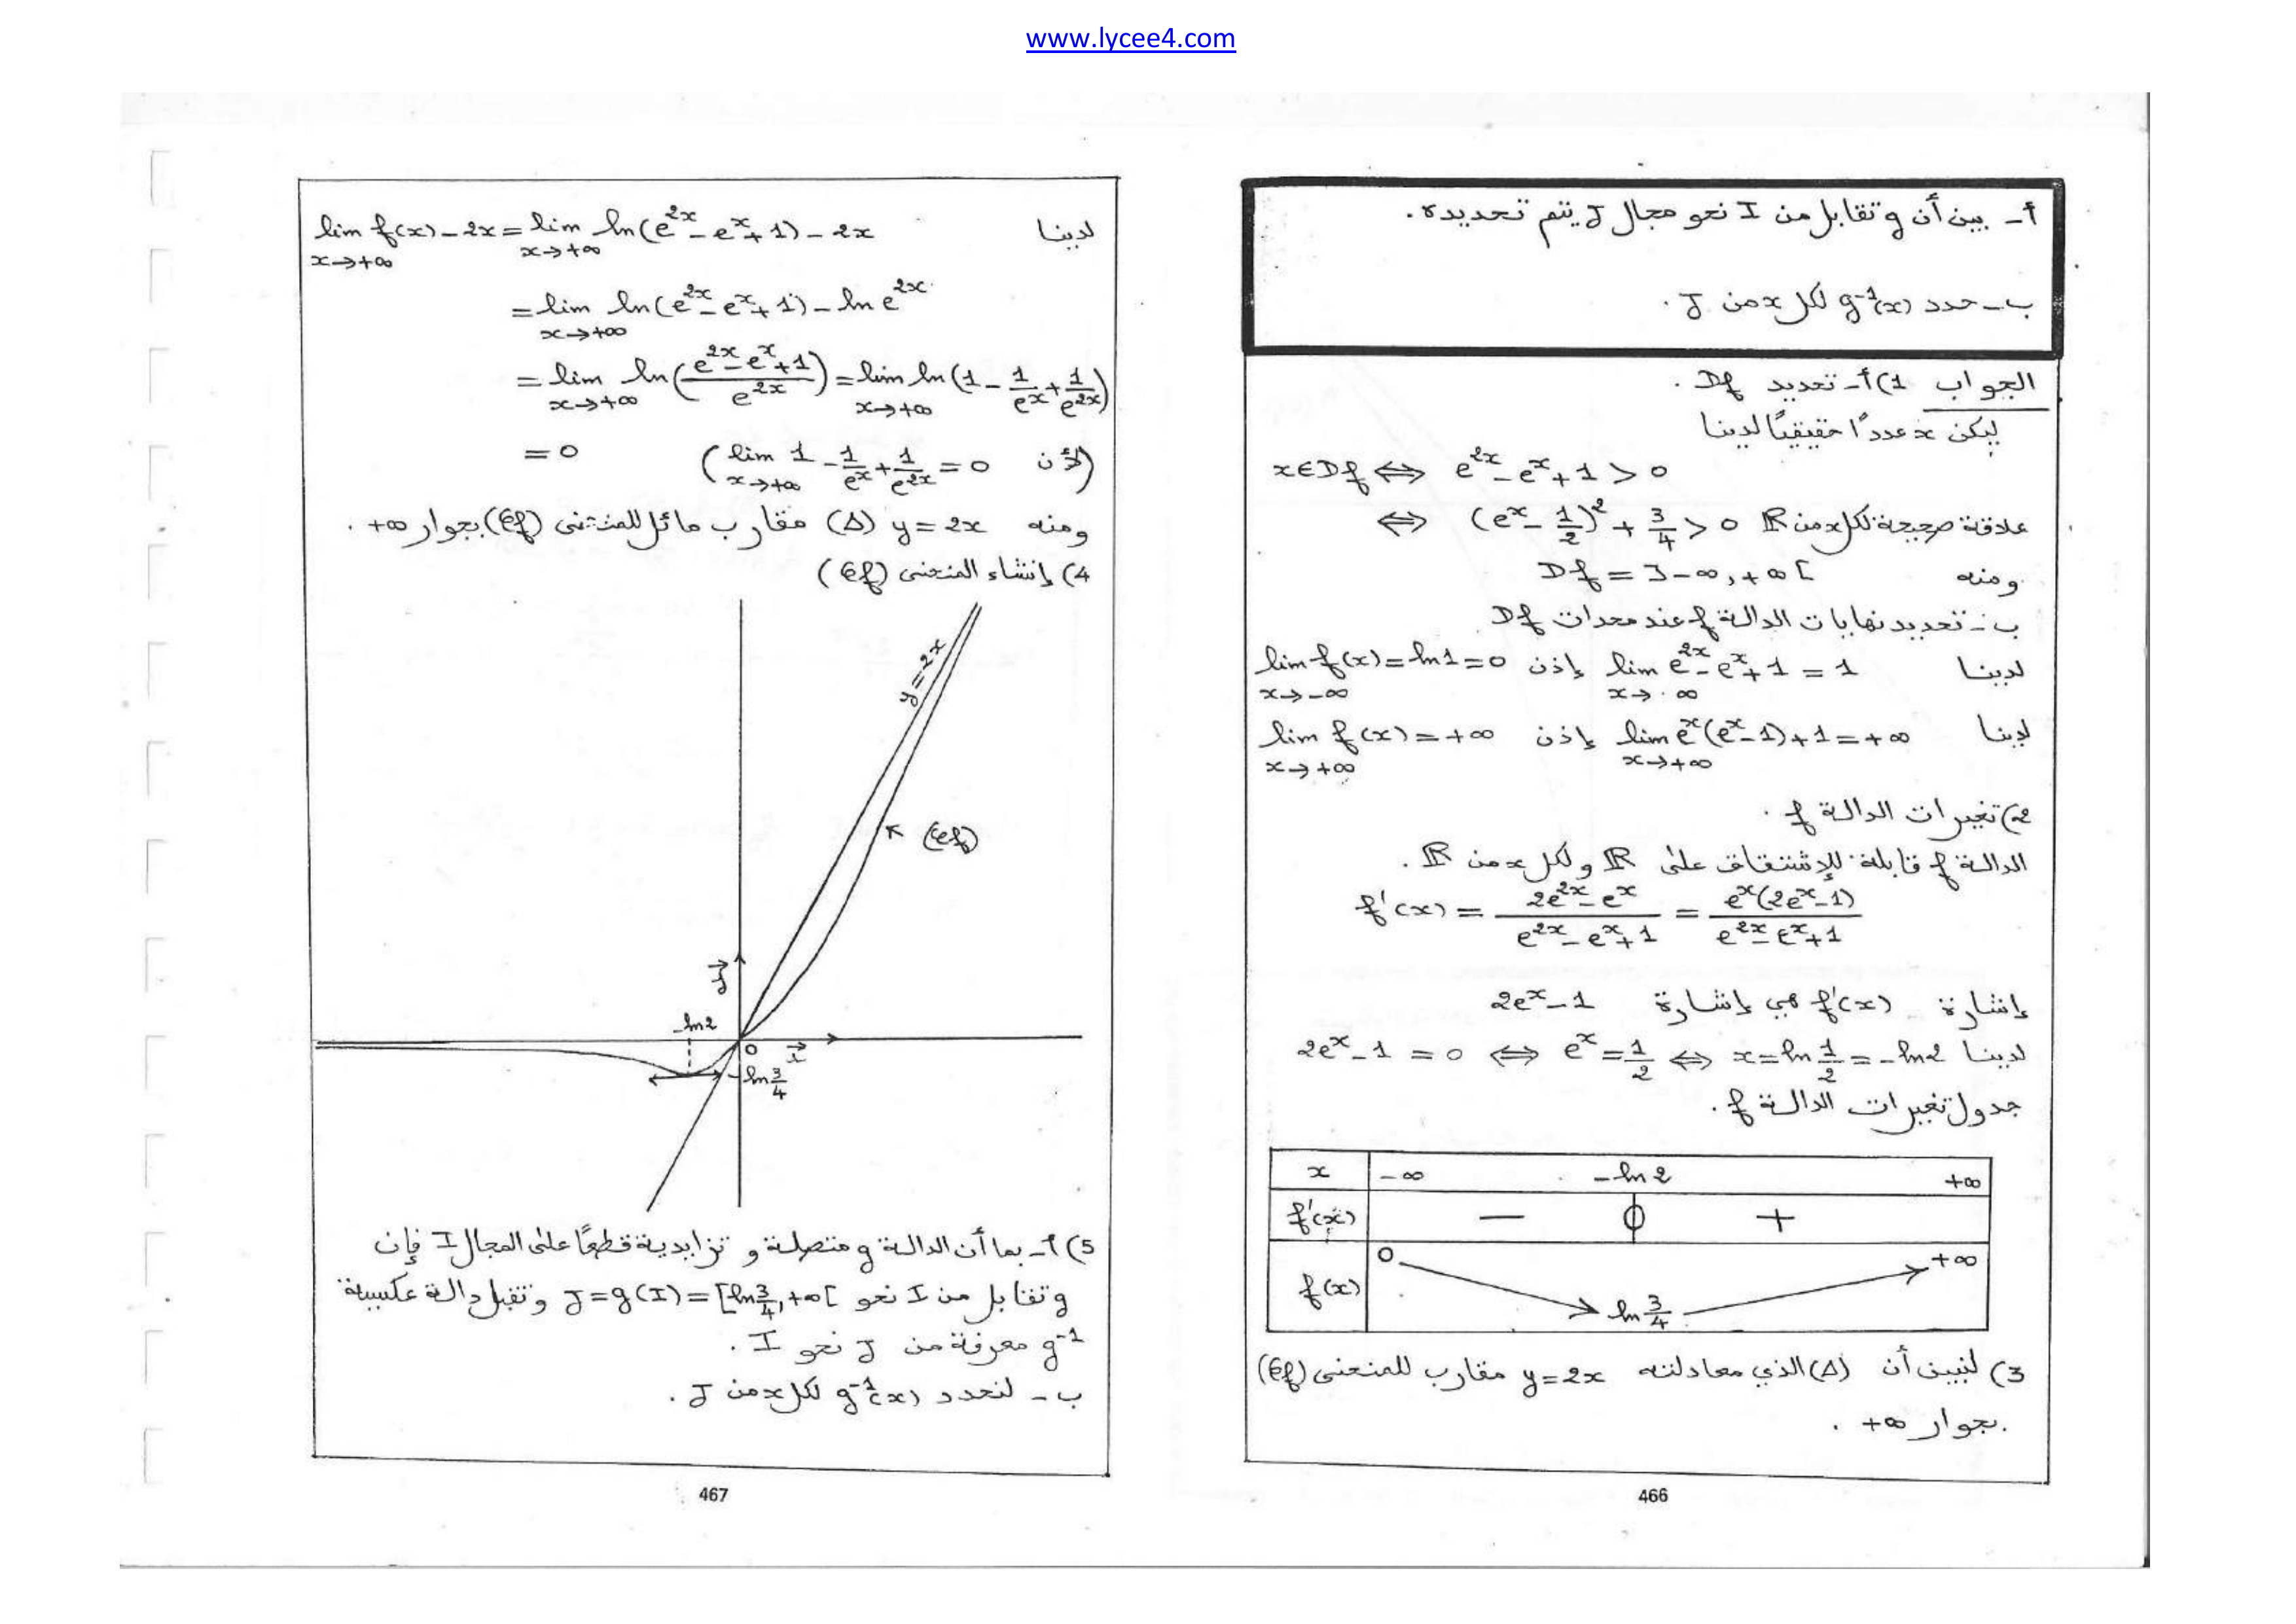 www.lycee4.com
أ - بين أن g تقابل من I نحو مجال J يتم تحديده.
ب - حدد g⁻¹(x) لكل x من J.
الجواب 1) أ - تحديد Df.
ليكن x عددًا حقيقيًا لدينا
x∈Df ⟺ e^{2x} - e^x + 1 > 0
⟺ (e^x - 1/2)² + 3/4 > 0 علاقة صحيحة لكل x من ℝ
ومنه Df = ]-∞, +∞[
ب - تحديد نهايات الدالة f عند محدات Df
لدينا lim_{x→-∞} e^{2x} - e^x + 1 = 1 إذن lim_{x→-∞} f(x) = ln1 = 0
لدينا lim_{x→+∞} e^x(e^x - 1) + 1 = +∞ إذن lim_{x→+∞} f(x) = +∞
2) تغيرات الدالة f.
الدالة f قابلة للإشتقاق على ℝ ولكل x من ℝ.
f'(x) = (2e^{2x} - e^x)/(e^{2x} - e^x + 1) = e^x(2e^x - 1)/(e^{2x} - e^x + 1)
إشارة f'(x) هي إشارة 2e^x - 1
لدينا 2e^x - 1 = 0 ⟺ e^x = 1/2 ⟺ x = ln 1/2 = -ln2
جدول تغيرات الدالة f.
x -∞ -ln2 +∞
f'(x) - 0 +
f(x) 0 ln 3/4 +∞
3) لنبين أن (Δ) الذي معادلته y = 2x مقارب للمنحنى (𝒞f)
بجوار +∞.
466
لدينا lim_{x→+∞} f(x) - 2x = lim_{x→+∞} ln(e^{2x} - e^x + 1) - 2x
= lim_{x→+∞} ln(e^{2x} - e^x + 1) - ln e^{2x}
= lim_{x→+∞} ln((e^{2x} - e^x + 1)/e^{2x}) = lim_{x→+∞} ln(1 - 1/e^x + 1/e^{2x})
= 0 (لأن lim_{x→+∞} 1 - 1/e^x + 1/e^{2x} = 0)
ومنه y = 2x (Δ) مقارب مائل للمنحنى (𝒞f) بجوار +∞.
4) إنشاء المنحنى (𝒞f)
y = 2x
(𝒞f)
j
-ln2
o i
-ln 3/4
5) أ - بما أن الدالة g متصلة و تزايدية قطعًا على المجال I فإن
g تقابل من I نحو J = g(I) = [ln 3/4, +∞[ وتقبل دالة عكسية
g⁻¹ معرفة من J نحو I.
ب - لنحدد g⁻¹(x) لكل x من J.
467